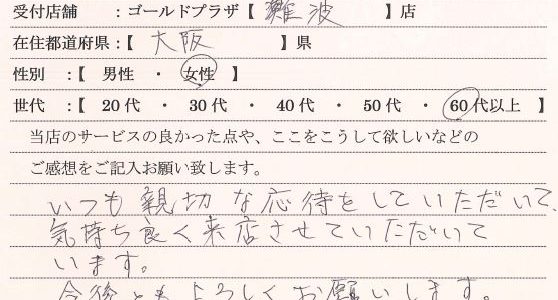 受付店舗 :ゴールドプラザ【 難波 】店
在住都道府県:【 大阪 】県
性別 :【 男性 ・ 女性 】
世代 :【 20代 ・ 30代 ・ 40代 ・ 50代 ・ 60代以上 】
当店のサービスの良かった点や、ここをこうして欲しいなどの
ご感想をご記入お願い致します。
いつも親切な応待をしていただいて、
気持ち良く来店させていただいて
います。
今後ともよろしくお願いします。